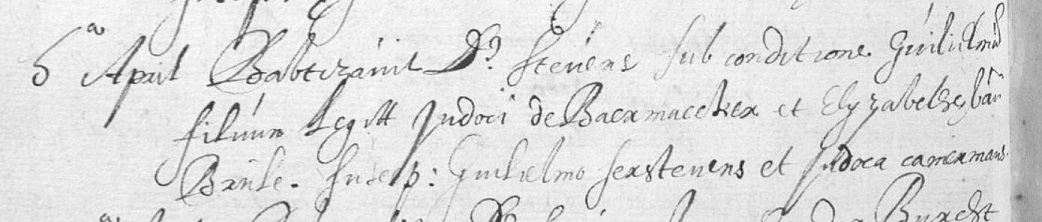 5ª April Babtizavit D9. stevens sub conditione. Guilielmū
filium Legitt Judoci de Baermaecker et Elyzabethe van
Brusle. Suscep: Guilielmo serstevens et Judoca camermans.